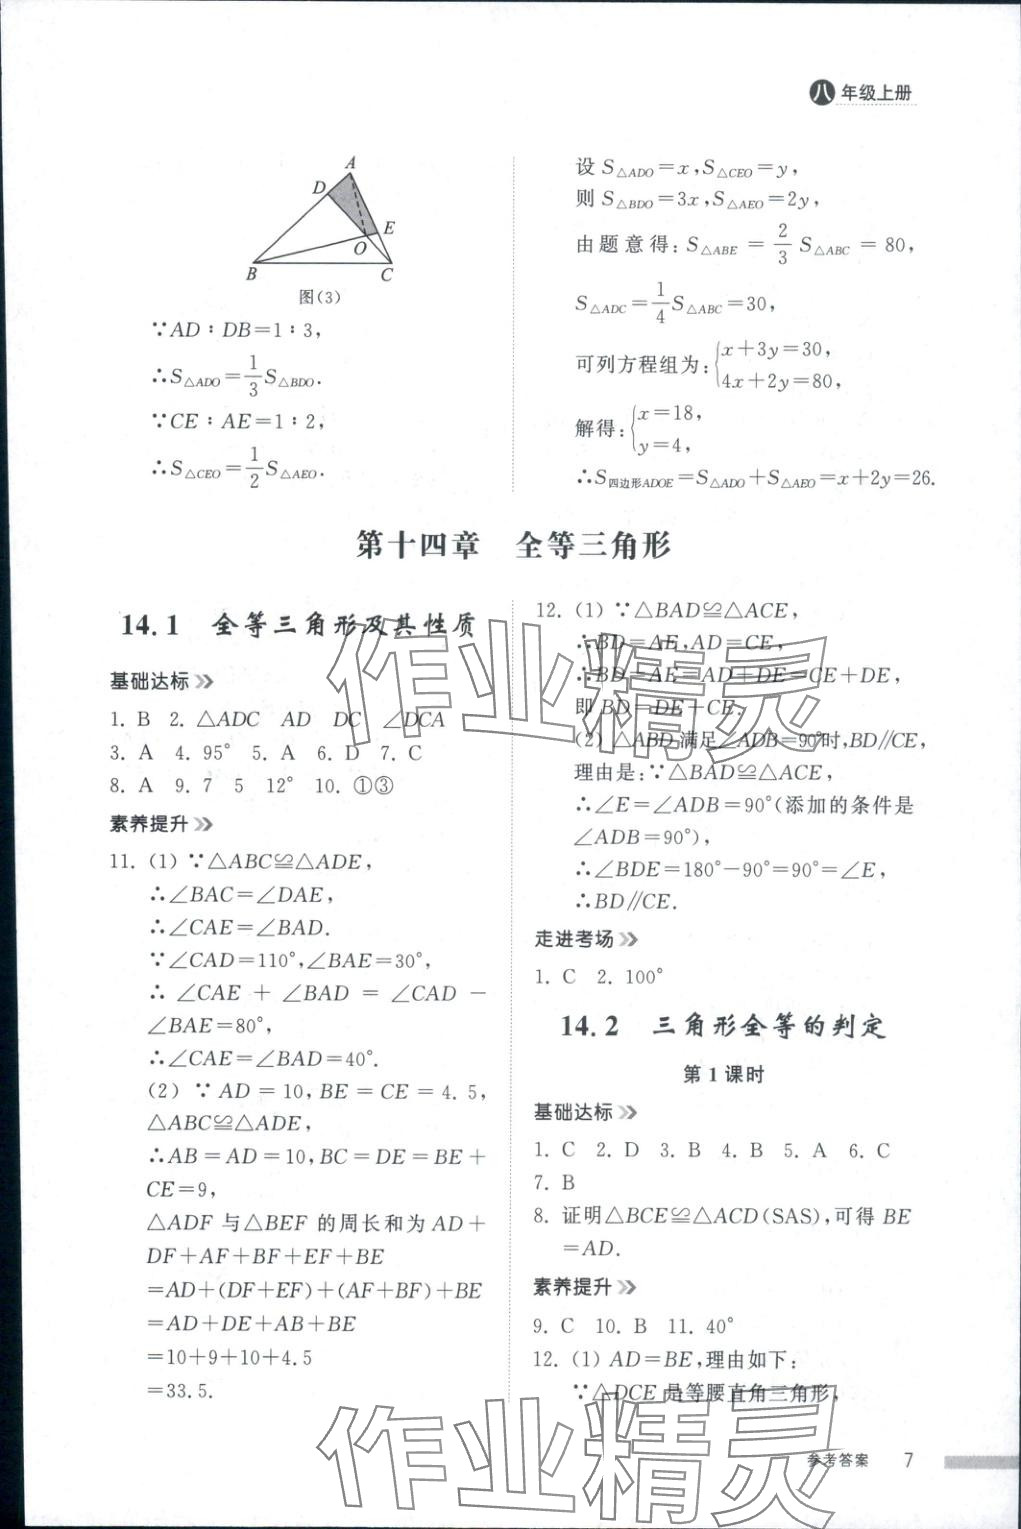 八 年级上册
A
D
E
O
B
C
图(3)
∵AD∶DB=1∶3,
∴S△ADO=1/3S△BDO.
∵CE∶AE=1∶2,
∴S△CEO=1/2S△AEO.
设S△ADO=x,S△CEO=y,
则S△BDO=3x,S△AEO=2y,
由题意得:S△ABE=2/3 S△ABC=80,
S△ADC=1/4S△ABC=30,
可列方程组为:{x+3y=30,
4x+2y=80,
解得:{x=18,
y=4,
∴S四边形ADOE=S△ADO+S△AEO=x+2y=26.
第十四章 全等三角形
14.1 全等三角形及其性质
基础达标
1. B 2. △ADC AD DC ∠DCA
3. A 4. 95° 5. A 6. D 7. C
8. A 9. 7 5 12° 10. ①③
素养提升
11. (1) ∵△ABC≌△ADE,
∴∠BAC=∠DAE,
∴∠CAE=∠BAD.
∵∠CAD=110°,∠BAE=30°,
∴∠CAE+∠BAD=∠CAD-
∠BAE=80°,
∴∠CAE=∠BAD=40°.
(2) ∵AD=10,BE=CE=4.5,
△ABC≌△ADE,
∴AB=AD=10,BC=DE=BE+
CE=9,
△ADF与△BEF的周长和为AD+
DF+AF+BF+EF+BE
=AD+(DF+EF)+(AF+BF)+BE
=AD+DE+AB+BE
=10+9+10+4.5
=33.5.
12. (1) ∵△BAD≌△ACE,
∴BD=AE,AD=CE,
∴BD=AE=AD+DE=CE+DE,
即BD=DE+CE.
(2) △ABD满足∠ADB=90°时,BD∥CE,
理由是:∵△BAD≌△ACE,
∴∠E=∠ADB=90°(添加的条件是
∠ADB=90°),
∴∠BDE=180°-90°=90°=∠E,
∴BD∥CE.
走进考场
1. C 2. 100°
14.2 三角形全等的判定
第1课时
基础达标
1. C 2. D 3. B 4. B 5. A 6. C
7. B
8. 证明△BCE≌△ACD(SAS),可得BE
=AD.
素养提升
9. C 10. B 11. 40°
12. (1) AD=BE,理由如下:
∵△DCE是等腰直角三角形,
作业精灵
作业精灵
参考答案 7